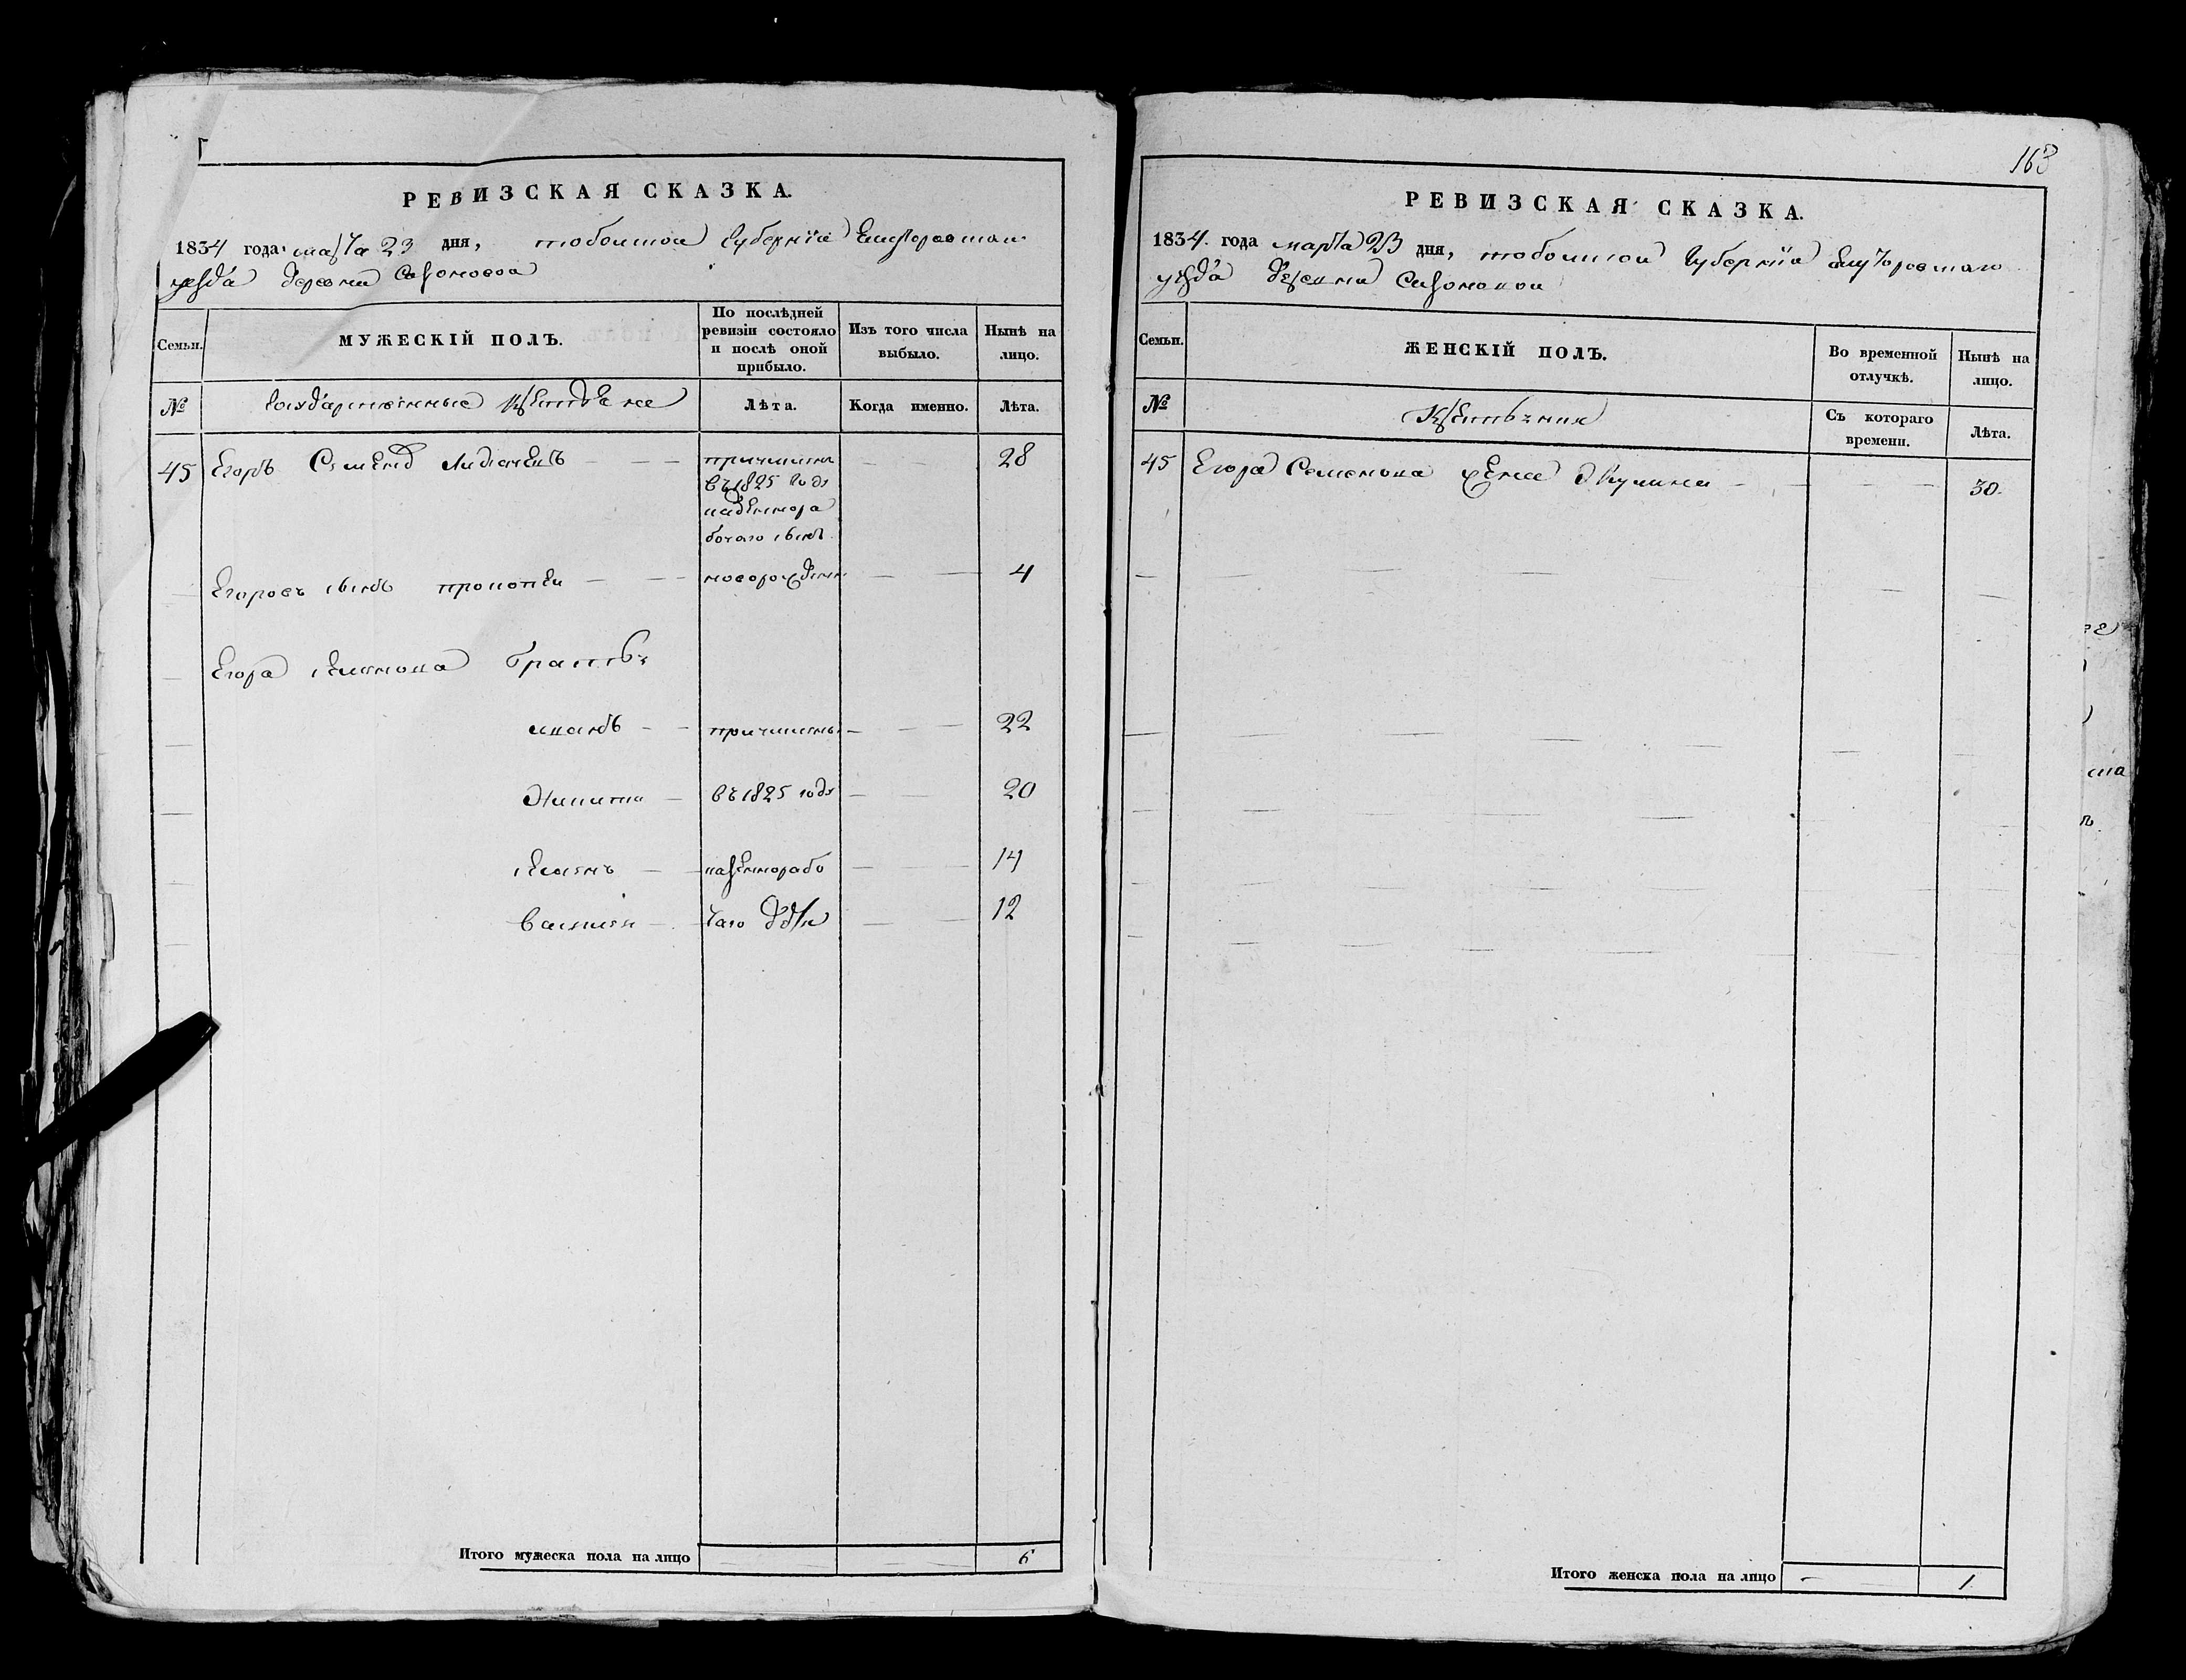 РЕВИЗСКАЯ СКАЗКА.
1834 года марта 23 дня, тобольской губернїи Ялуторовскаго
уезда деревни Сазоновой
Семьи.
МУЖЕСКІЙ ПОЛЪ.
По послѣдней ревизіи состояло и послѣ оной прибыло.
Изъ того числа выбыло.
Нынѣ на лицо.
№
государственные крестьяне
Лѣта.
Когда именно.
Лѣта.
45 Егоръ Семенов причислен 28
въ 1825 году
бочаго
Егоровъ сынъ прокопеи новорожден 4
Егора семенова братья
иванъ причислены 22
Никита въ 1825 году 20
14
василеи 12
Итого мужеска пола на лицо 6
163
РЕВИЗСКАЯ СКАЗКА.
1834. года марта 23 дня, тобольской губернїи Ялуторовскаго
уезда деревни Сазоновой
Семьи.
ЖЕНСКІЙ ПОЛЪ.
Во временной отлучкѣ.
Нынѣ на лицо.
№
Крестьянки
Съ котораго времени.
Лѣта.
45 Егора Семенова жена Акулина 30.
Итого женска пола на лицо 1